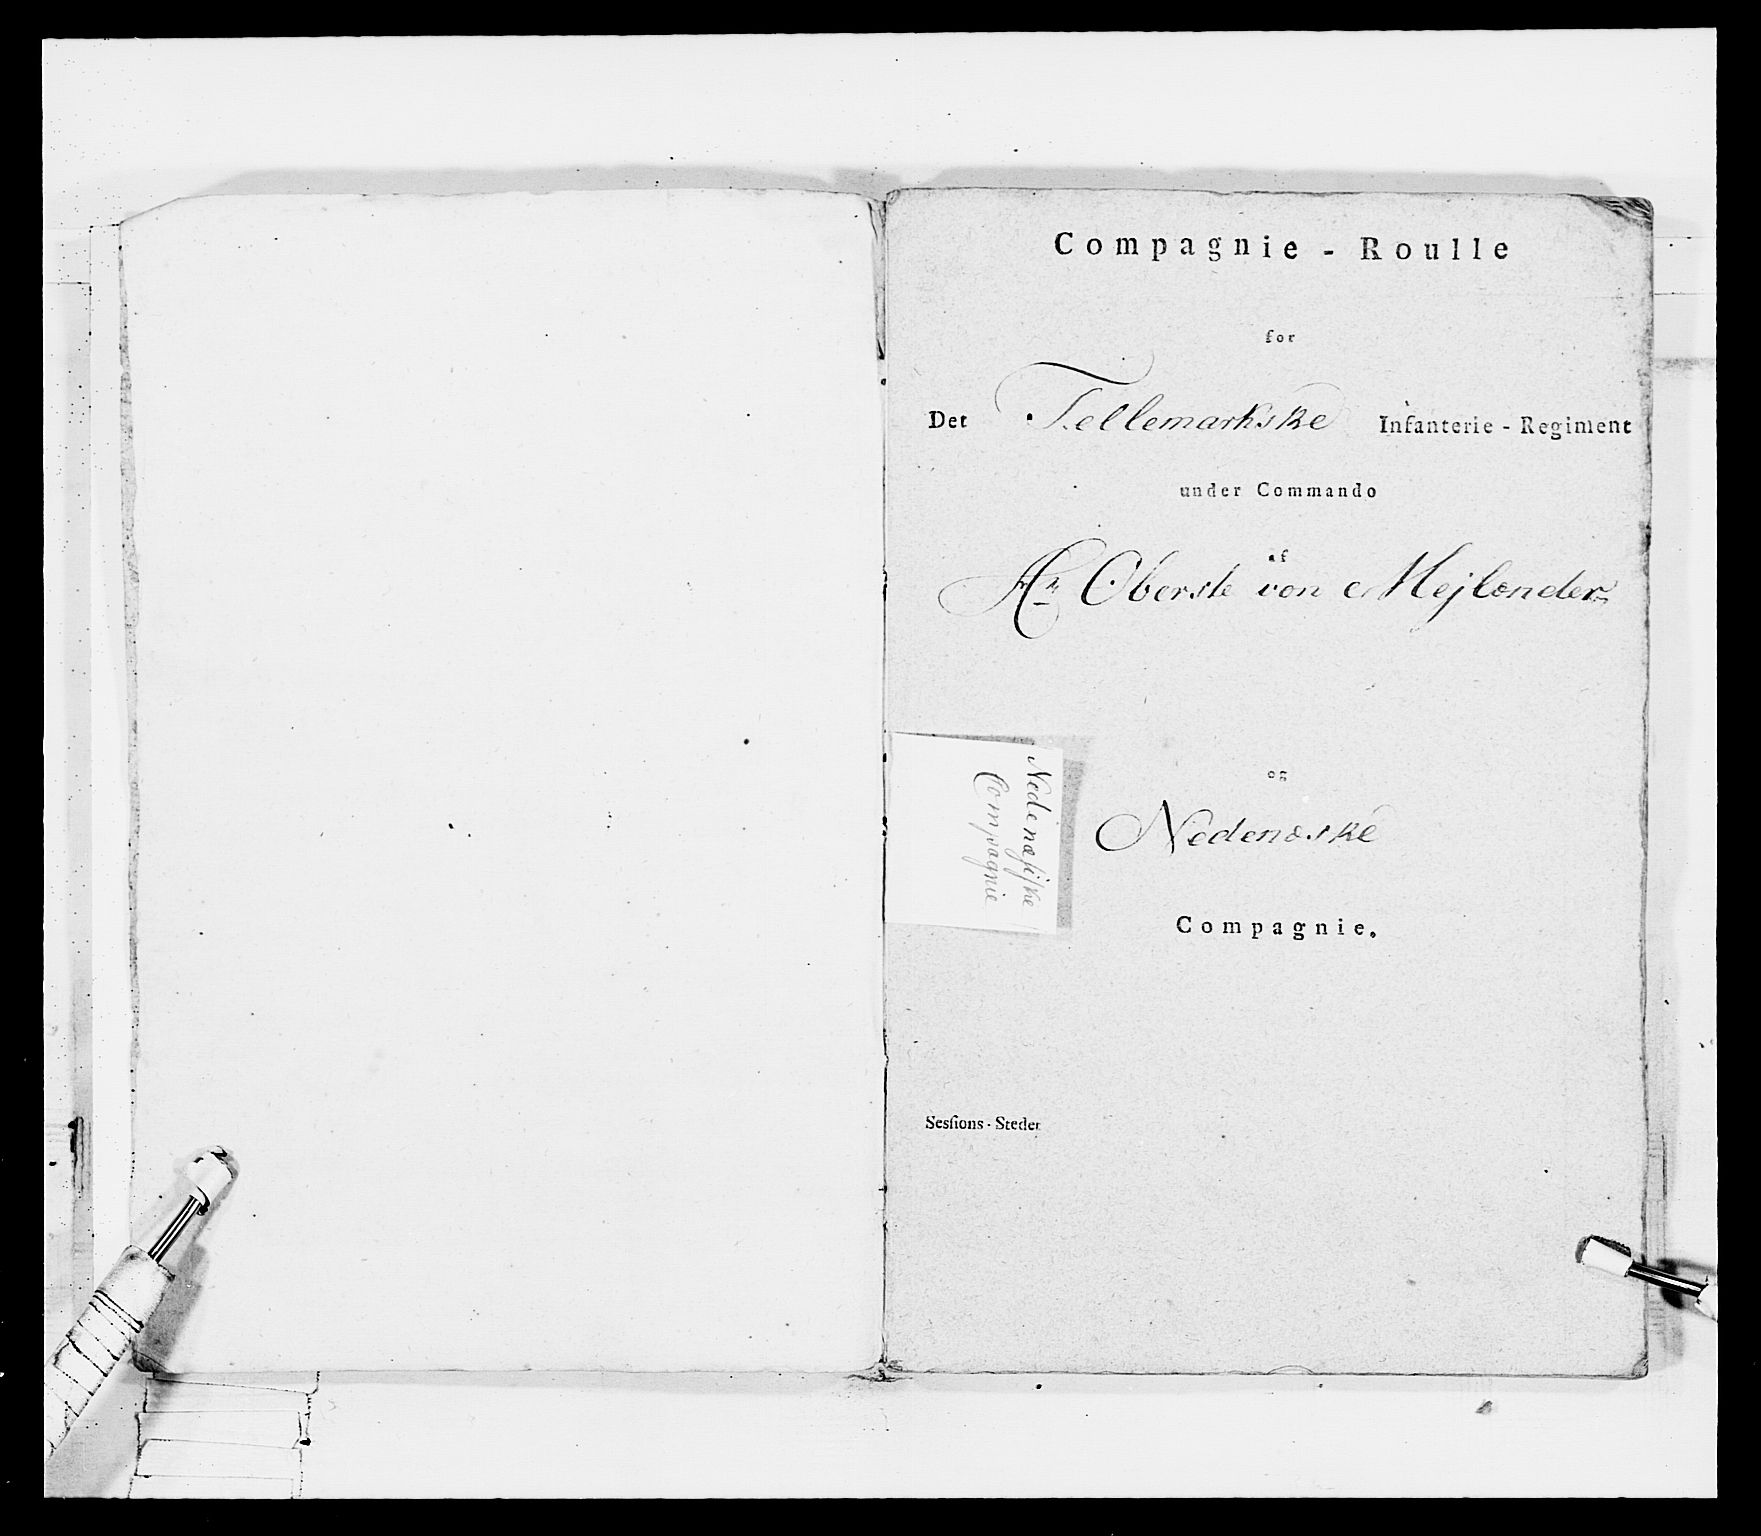 Compagnie - Roulle
for
Det Tellemarkske Infanterie - Regiment
under Commando
af
Hr Oberste von Mejlænder
og
Nedenæske
Compagnie.
Nedenæsiſke
Compagnie
Sesſions - Steder